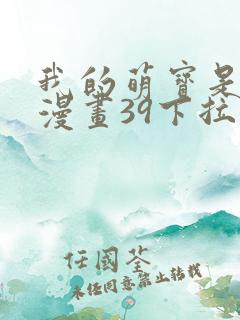 我的萌寶是
漫畫39下拉
任國荃
未经同意禁止转载